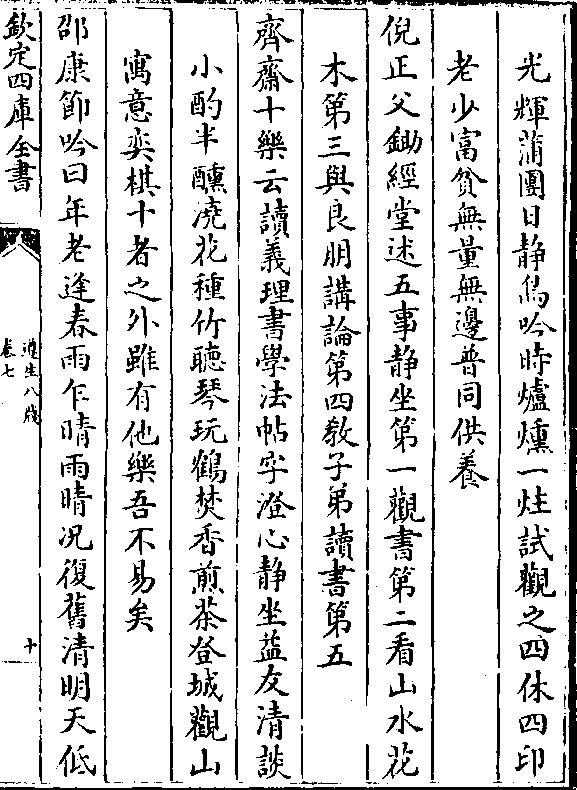 光輝蒲團日静鳥吟時爐爐燻一炷試觀之四休四印
老少富貧無量無邊普同供養
倪正父鋤經堂述五事静坐第一觀書第二看山水花
木第三與良朋講論第四敎子弟讀書第五
齊齋十樂云讀義理書學法帖字澄心静坐益友清談
小酌半醺澆花種竹聽琴玩鶴焚香煎茶登城觀山
寓意奕棋十者之外雖有他樂吾不易矣
邵康節吟曰年老逢春雨乍晴雨晴况復舊清明天低
欽定四庫全書
遵生八牋
卷七
十